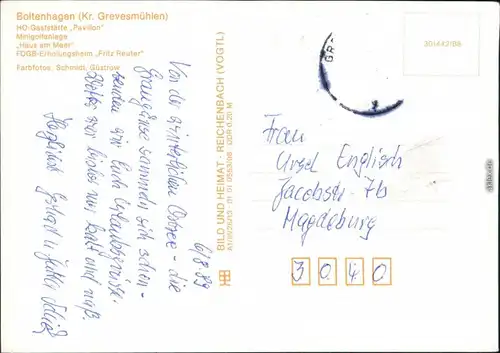 Boltenhagen (Kr. Grevesmühlen)
HO-Gaststätte „Pavillon"
Minigolfanlage
„Haus am Meer"
FDGB-Erholungsheim „Fritz Reuter"
Farbfotos: Schmidt, Güstrow
6/8.89
Von der winterlichen Ostsee - die
Graugänse sammeln sich schon -
senden wir Euch Urlaubsgrüsse.
Wetter war bisher nur kalt und naß.
Herzlichst Gerhard u. Jutta
BILD UND HEIMAT · REICHENBACH (VOGTL)
A1/III/26/13 01 01 0553/08 DDR 0,20 M
301442/88
GR
Frau
Ursel Englisch
Jacobstr. 7b
Magdeburg
3040